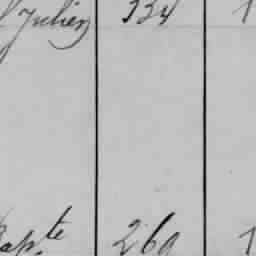 Julien 334 1
Bapte 260 1